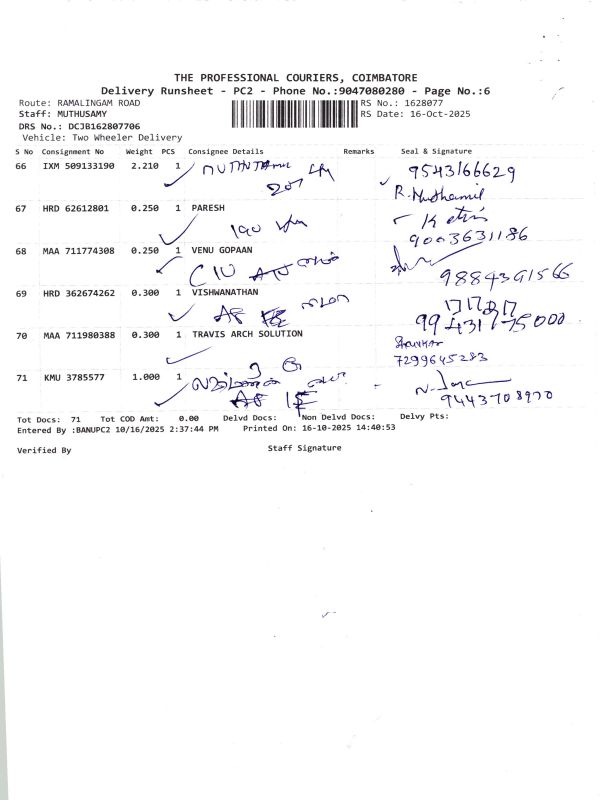 THE PROFESSIONAL COURIERS, COIMBATORE
Delivery Runsheet - PC2 - Phone No.:9047080280 - Page No.:6
Route: RAMALINGAM ROAD RS No.: 1628077
Staff: MUTHUSAMY RS Date: 16-Oct-2025
DRS No.: DCJB162807706
Vehicle: Two Wheeler Delivery
S No Consignment No Weight PCS Consignee Details Remarks Seal & Signature
66 IXM 509133190 2.210 1 9543166629
207 R. Muthamil
67 HRD 62612801 0.250 1 PARESH
190 9003631186
68 MAA 711774308 0.250 1 VENU GOPAAN
9884391566
69 HRD 362674262 0.300 1 VISHWANATHAN
70 MAA 711980388 0.300 1 TRAVIS ARCH SOLUTION
7299645283
71 KMU 3785577 1.000 1
9443708970
Tot Docs: 71 Tot COD Amt: 0.00 Delvd Docs: Non Delvd Docs: Delvy Pts:
Entered By :BANUPC2 10/16/2025 2:37:44 PM Printed On: 16-10-2025 14:40:53
Verified By Staff Signature